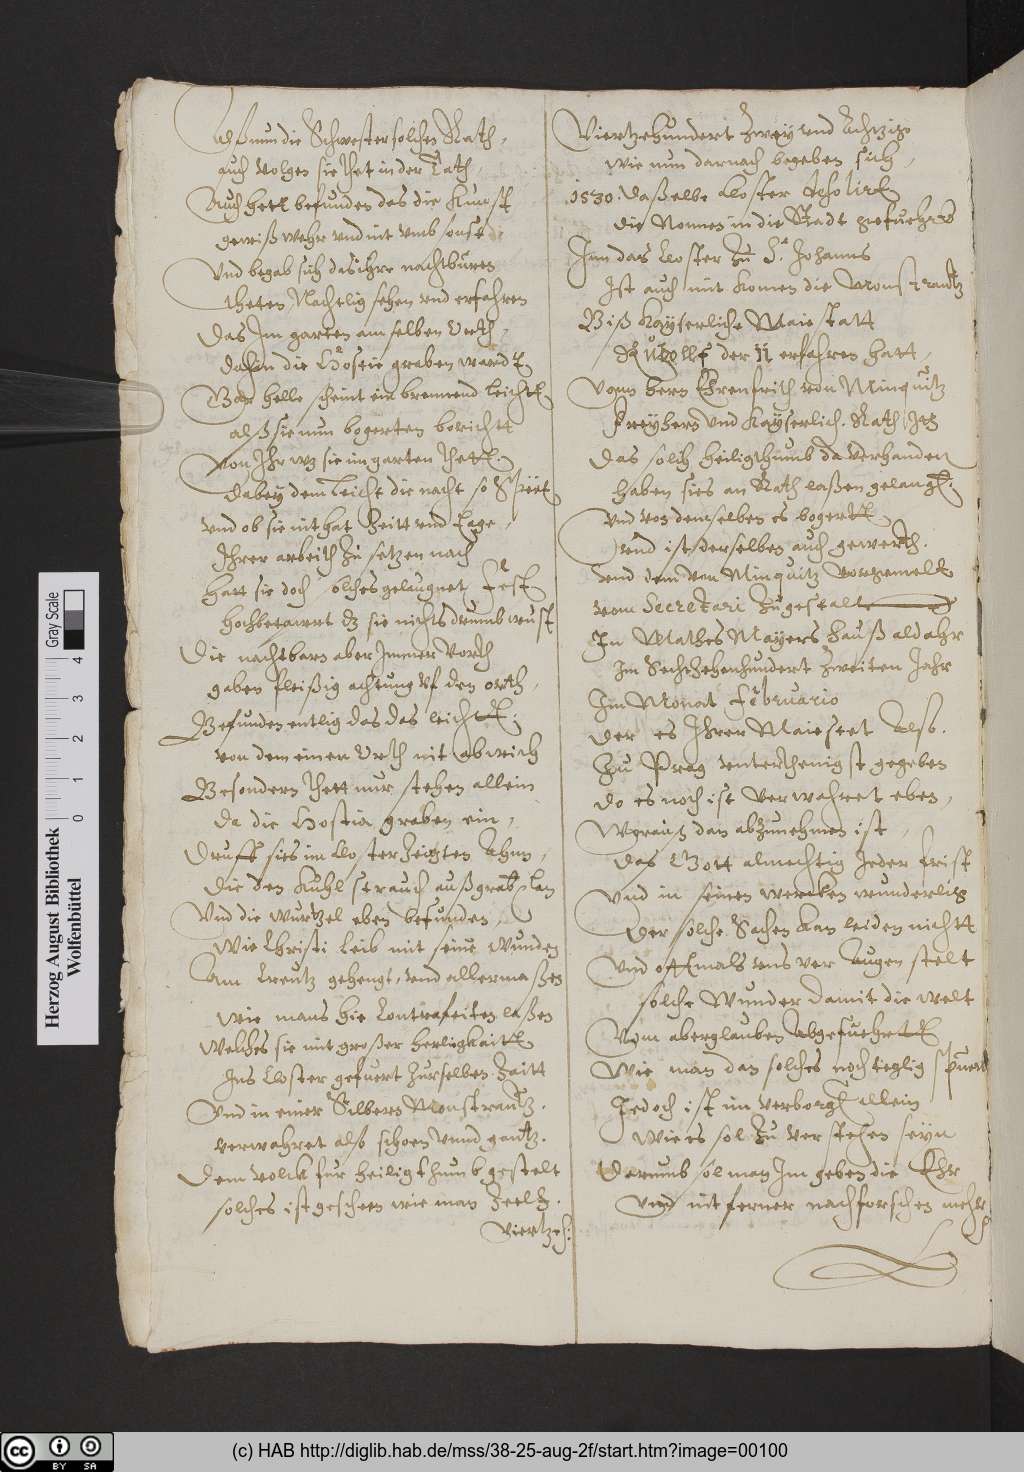 Alß nun die Schwester solchen Rath,
auch Volgen sie thet in der That,
Auch hett befunden das die Kunst
gewiß wahr und nit umb sonst,
Und begab sich das ihre nachtbaren
theten Nachtlig sehen und erfahren
Das Im garten am selben Orth,
dahin die Hostie graben ward
Gar helle scheint ein brennend leicht
alß sie nun begerten bericht
von Ihr wz sie im garten thett
dabey dem leicht die nacht so Spett
und ob sie nit hat Zeitt und tage,
Ihrer arbeith zu setzen nach
hatt sie doch solches gelaugnet fest
hochbetawert dz sie nichts drumb wust
Die nachtbarn aber Immer Vorth
gaben fleißig achtung uf den orth,
Befunden entlig das das leicht
von dem einen Orth nit abweich
Besondern thett nur stehen allein
da die Hostia graben ein,
Druff sies im Closter Zeigten Ahnn,
die den Kuhl strauch außgraben lan
Und die wurtzel eben befunden,
Wie Christi leib mit seine Wunden
Am Creutz gehengt, und allermaßen
wie mans hie Contrafeiten laßen
Welches sie mit großer herligkait
Ins Closter gefuert Zurselben Zeitt
Und in einer Silbern Monstrantz.
verwahret alß schoen unnd gantz.
Dem volck fur heiligthumb gestelt
solches ist geschen wie man Zeelt.
Viertzeh:
Viertzehundert Zwey und Achtzigo
wie nun darnach begeben sich,
1530. Daßelbe Closter desolirt
die Nonnen in die Stadt gefuehrt
Inn das Closter zu S. Johanns
Ist auch mit komen die Monstrantz
Biß Kayserliche Maiestatt
Rudolff der II erfahren hatt,
Vonn hern Ehrenfrith von Minquitz
freyhern und Kayserlich. Rath Itz
Das solch heiligthumb da verhanden
haben sies an Rath laßen gelang:
Und von demselben es begert
und ist derselben auch gewerth.
und dem von Minquitz vorgemelt
vom Secretari zugestalt
In Mathes Mayers hauß aldahr
Im Sechzehenhundert Zweiten Jahr
Im Monat februario
der es Ihrer Maiestet Also.
Zu Prag untertenigst gegeben
do es noch ist verwahret eben,
Woraus dan abzunehmen ist,
das Gott almechtig Jeder frist
Und in seinen wercken wunderlig
der solche Sachen kan leiden nicht
Und offtmals uns vor Augen stelt
solche Wunder damit die welt
Vom aberglauben Abgefuehrt
Wie man dan solches noch teglig spuert
Jedoch ist im verborg allein
Wie es sol zu verstehen seyn
Darumb sol man Im geben die Ehr
Und nit ferner nachforschen mehr
Herzog August Bibliothek
Wolfenbüttel
Gray Scale
0 1 2 3 4
cc BY SA
(c) HAB http://diglib.hab.de/mss/38-25-aug-2f/start.htm?image=00100